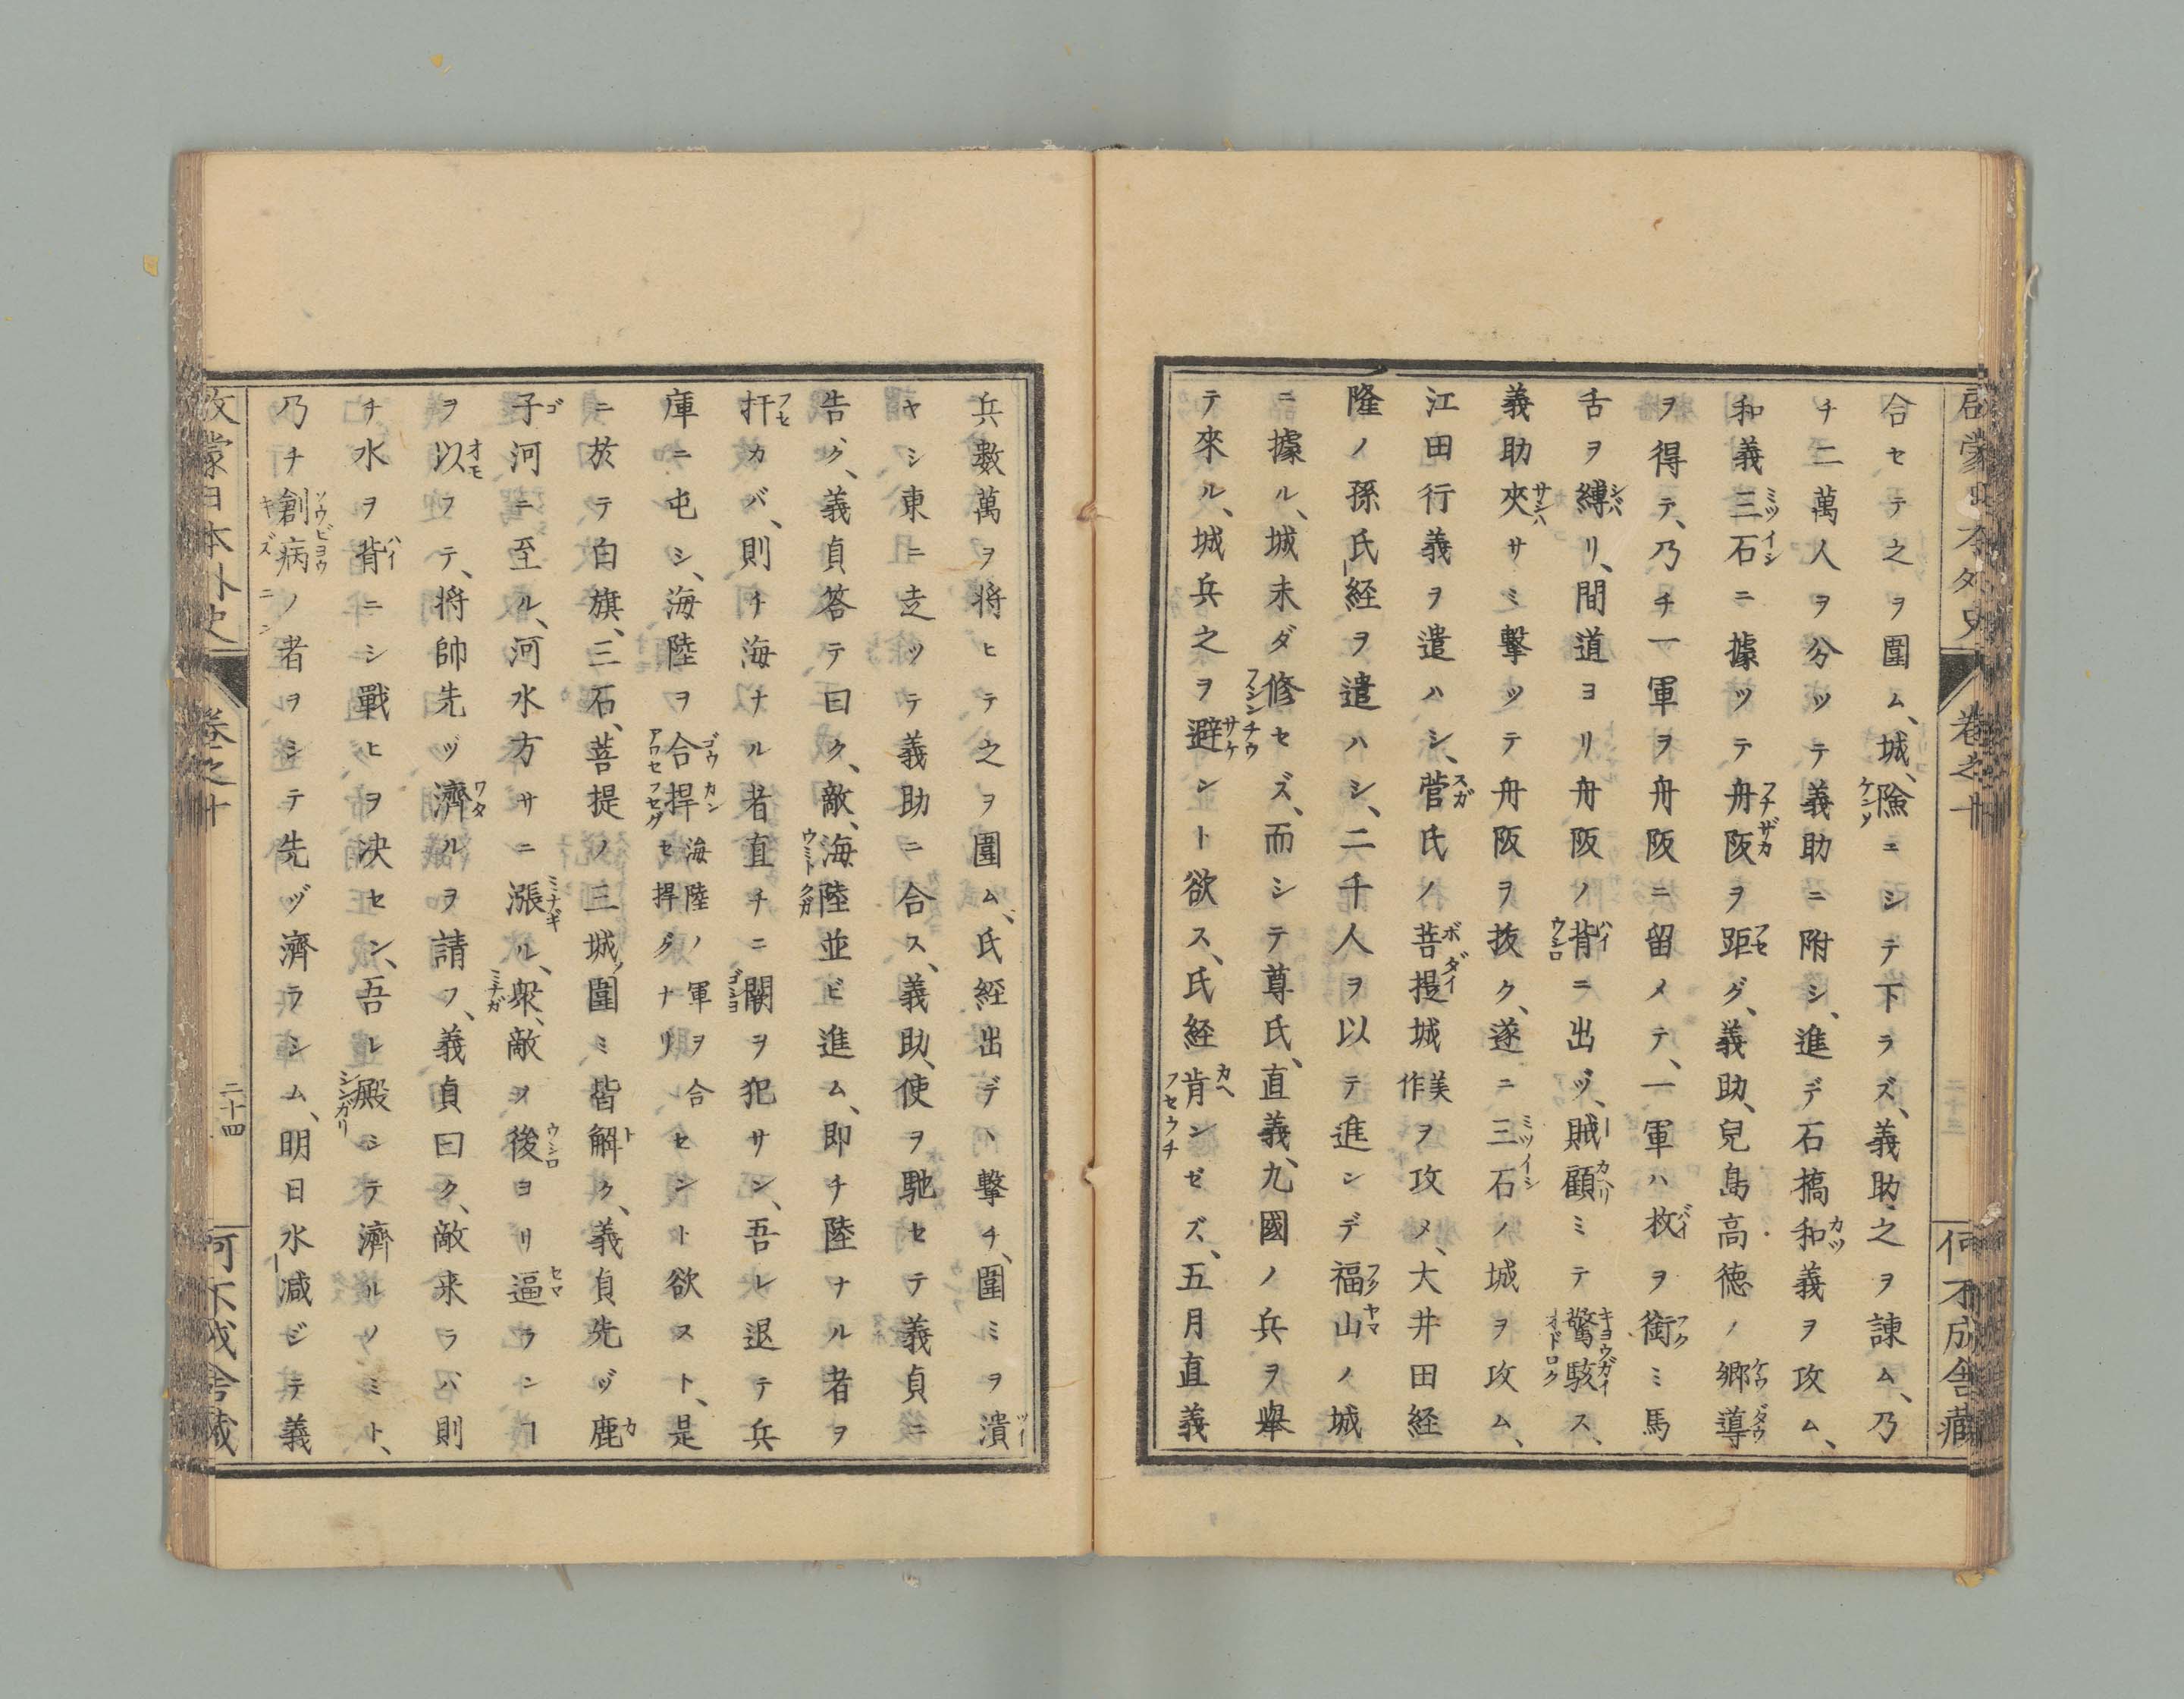 啓蒙日本外史 卷之十 何不成舎藏
合セテ之ヲ圍ム、城、險ニシテ下ラズ、義助、之ヲ諫ム、乃
チ二萬人ヲ分ツテ義助ニ附シ、進デ石橋和義ヲ攻ム、
和義三石ニ據ツテ舟阪ヲ距グ、義助、兒島高徳ノ郷導
ヲ得テ、乃チ一軍ヲ舟阪ニ留メテ、一軍ハ枚ヲ銜ミ馬
舌ヲ縛リ、間道ヨリ舟阪ノ背ニ出ヅ、賊顧ミテ驚駭ス、
義助夾サミ撃ツテ舟阪ヲ抜ク、遂ニ三石ノ城ヲ攻ム、
江田行義ヲ遣ハシ、菅氏ノ菩提城美作ヲ攻メ、大井田経
隆ノ孫氏経ヲ遣ハシ、二千人ヲ以テ進ンデ福山ノ城
ニ據ル、城未ダ修セズ、而シテ尊氏、直義、九國ノ兵ヲ舉
テ來ル、城兵之ヲ避ント欲ス、氏経肯ンゼズ、五月直義
兵數萬ヲ将ヒテ之ヲ圍ム、氏経出デヽ撃チ、圍ミヲ潰
ヤシ東ニ走ツテ義助ニ合ス、義助、使ヲ馳セテ義貞ニ
告グ、義貞答テ曰ク、敵、海陸並ビ進ム、即チ陸ナル者ヲ
扞カバ、則チ海ナル者直チニ闕ヲ犯サン、吾レ退テ兵
庫ニ屯シ、海陸ヲ合捍セ海陸ノ軍ヲ合セ捍グナリンド欲スト、是
ニ於テ白旗、三石、菩提ノ三城ノ圍ミ皆解ク、義貞先ヅ鹿
子河ニ至ル、河水方サニ漲ル、衆、敵ヲ後ヨリ逼ランヿ
ヲ以フテ、将帥先ヅ濟ルヲ請フ、義貞曰ク、敵来ラバ則
チ水ヲ背ニシ戰ヒヲ決セン、吾レ殿シテ濟ルノミト、
乃チ創病ノ者ヲシテ先ヅ濟ラシム、明日水減ジテ義
啓蒙日本外史 卷之十 二十四 何不成舎藏